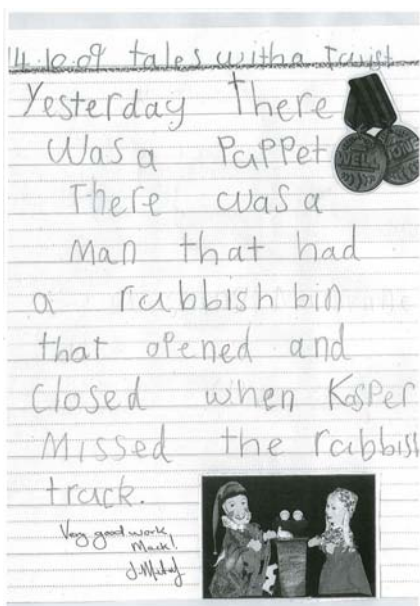 14.10.09 tales with a Twist
Yesterday There
was a Puppet
There was a
Man that had
a rubbish bin
that opened and
closed when Kasper
Missed the rubbish
truck.
WELL DONE
Very good work
Mack!